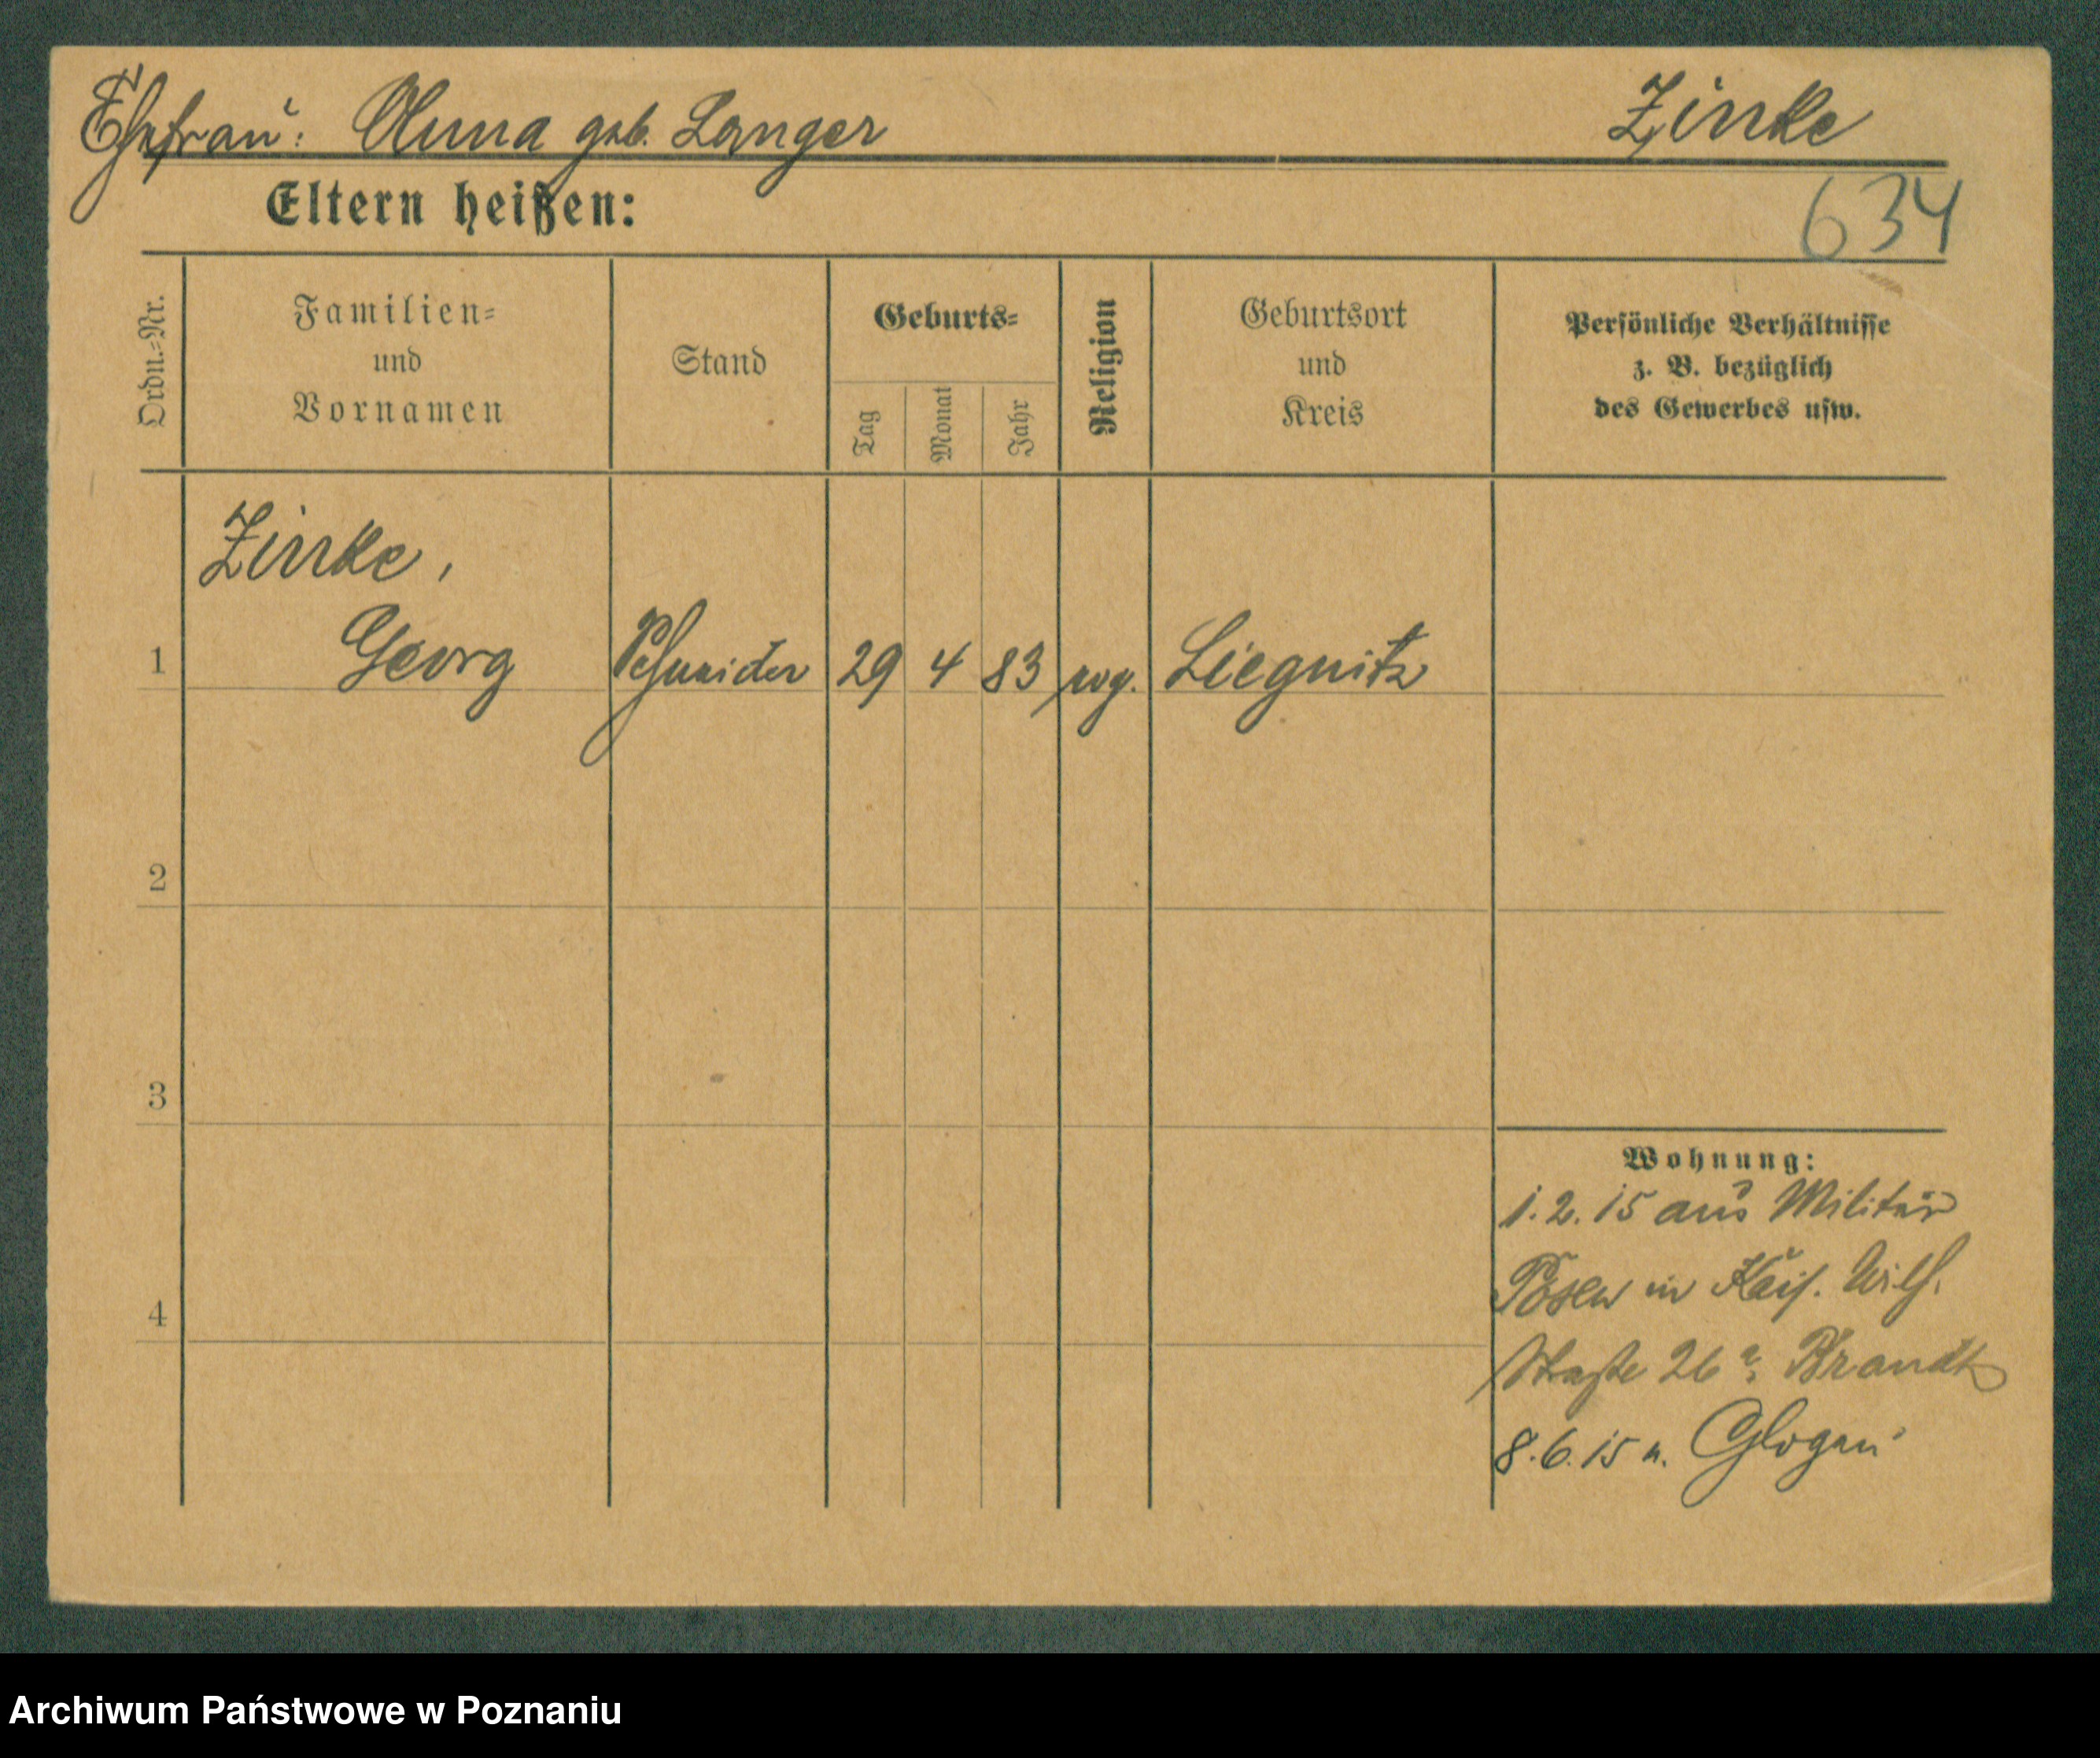 Ehefrau: Anna geb. Langer Zinke
Eltern heißen:
634
Ordn.=Nr.
Familien=
und
Vornamen
Stand
Geburts=
Tag
Monat
Jahr
Religion
Geburtsort
und
Kreis
Persönliche Verhältnisse
z. B. bezüglich
des Gewerbes usw.
Zinke,
1 Georg Schneider 29 4 83 evg. Liegnitz
2
3
4
Wohnung:
1. 2. 15 aus Militär
Posen in Kais. Wilh.
Straße 26 a Brandt
8. 6. 15 n. Glogau
Archiwum Państwowe w Poznaniu